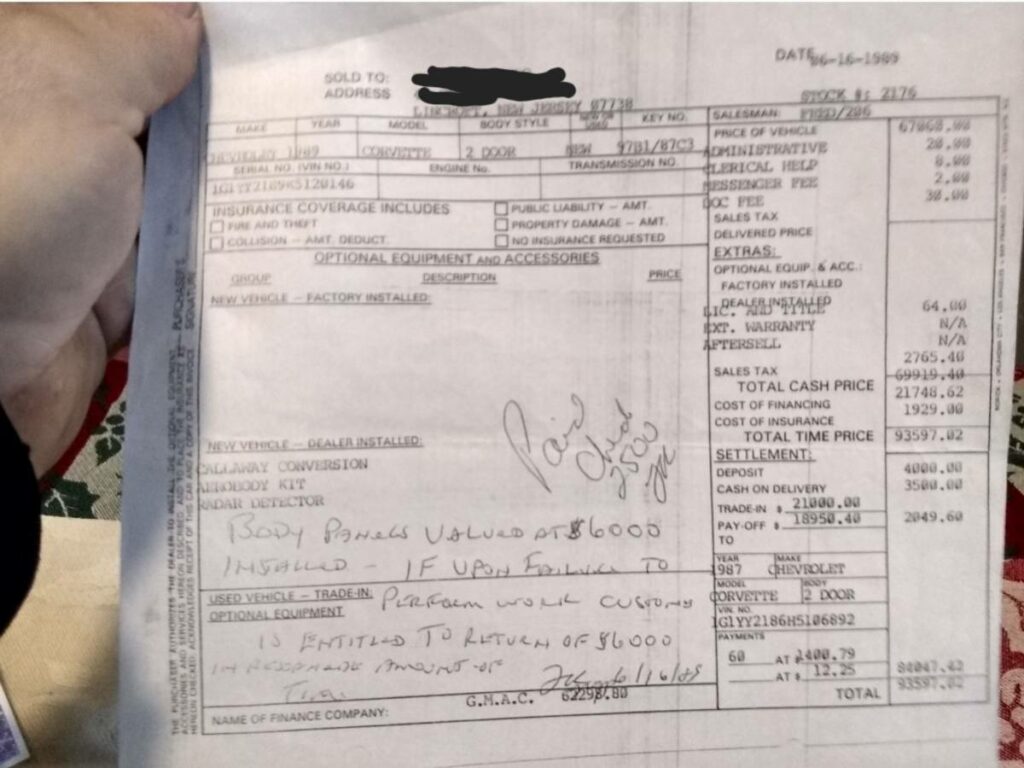 DATE 06-16-1989
SOLD TO:
ADDRESS
LINCROFT, NEW JERSEY 07738
STOCK #: 2176
MAKE YEAR MODEL BODY STYLE NEW OR USED KEY NO.
CHEVROLET 1989 CORVETTE 2 DOOR NEW 97B1/87C3
SERIAL NO. (VIN NO.) ENGINE No. TRANSMISSION NO.
1G1YY2189K5120146
INSURANCE COVERAGE INCLUDES
PUBLIC LIABILITY — AMT.
FIRE AND THEFT
PROPERTY DAMAGE — AMT.
COLLISION — AMT. DEDUCT.
NO INSURANCE REQUESTED
OPTIONAL EQUIPMENT AND ACCESSORIES
GROUP DESCRIPTION PRICE
NEW VEHICLE — FACTORY INSTALLED:
Paid
Check
2500
NEW VEHICLE — DEALER INSTALLED:
CALLAWAY CONVERSION
AEROBODY KIT
RADAR DETECTOR
BODY PANELS VALUED AT $6000
INSTALLED - IF UPON FAILURE TO
USED VEHICLE — TRADE-IN: PERFORM WORK CUSTOMER
OPTIONAL EQUIPMENT
IS ENTITLED TO RETURN OF $6000
IN REASONABLE AMOUNT OF
TIME. 6/16/89
G.M.A.C. 62298.80
NAME OF FINANCE COMPANY:
SALESMAN: FRED/206
PRICE OF VEHICLE 67068.00
ADMINISTRATIVE 20.00
CLERICAL HELP 8.00
MESSENGER FEE 2.00
DOC FEE 30.00
SALES TAX
DELIVERED PRICE
EXTRAS:
OPTIONAL EQUIP. & ACC.:
FACTORY INSTALLED
DEALER INSTALLED
LIC. AND TITLE 64.00
EXT. WARRANTY N/A
AFTERSELL N/A
2765.40
SALES TAX 69919.40
TOTAL CASH PRICE 21748.62
COST OF FINANCING 1929.00
COST OF INSURANCE
TOTAL TIME PRICE 93597.02
SETTLEMENT:
DEPOSIT 4000.00
CASH ON DELIVERY 3500.00
TRADE-IN $ 21000.00
PAY-OFF $ 18950.40 2049.60
TO
YEAR MAKE
1987 CHEVROLET
MODEL BODY
CORVETTE 2 DOOR
VIN. NO.
1G1YY2186H5106892
PAYMENTS
60 AT $ 1400.79
AT $ 12.25 84047.42
TOTAL 93597.02
THE PURCHASER AUTHORIZES THE DEALER TO INSTALL THE OPTIONAL EQUIPMENT,
ACCESSORIES AND SERVICES HEREON DESCRIBED, AND TO PLACE THE INSURANCE AS
HEREON CHECKED. ACKNOWLEDGES RECEIPT OF THIS CAR AND A COPY OF THIS INVOICE
PURCHASER'S
SIGNATURE